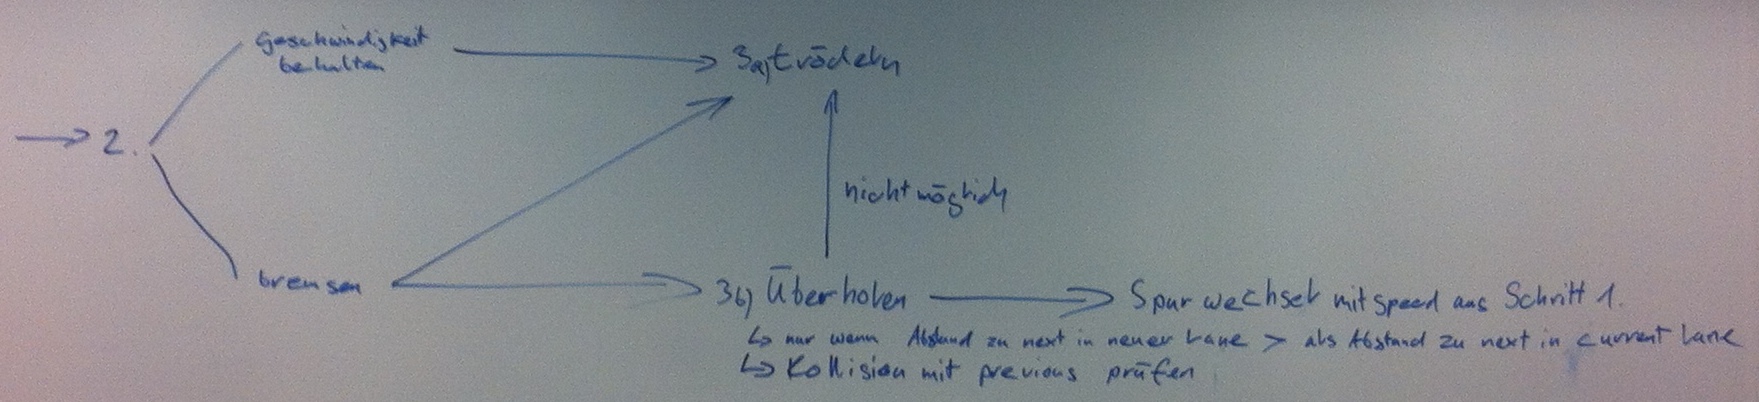 Geschwindigkeit
behalten
3a) trödeln
2.
nicht möglich
bremsen
3b) Überholen
Spurwechsel mit speed aus Schritt 1.
↳ nur wenn Abstand zu next in neuer Lane > als Abstand zu next in current Lane
↳ Kollision mit previous prüfen